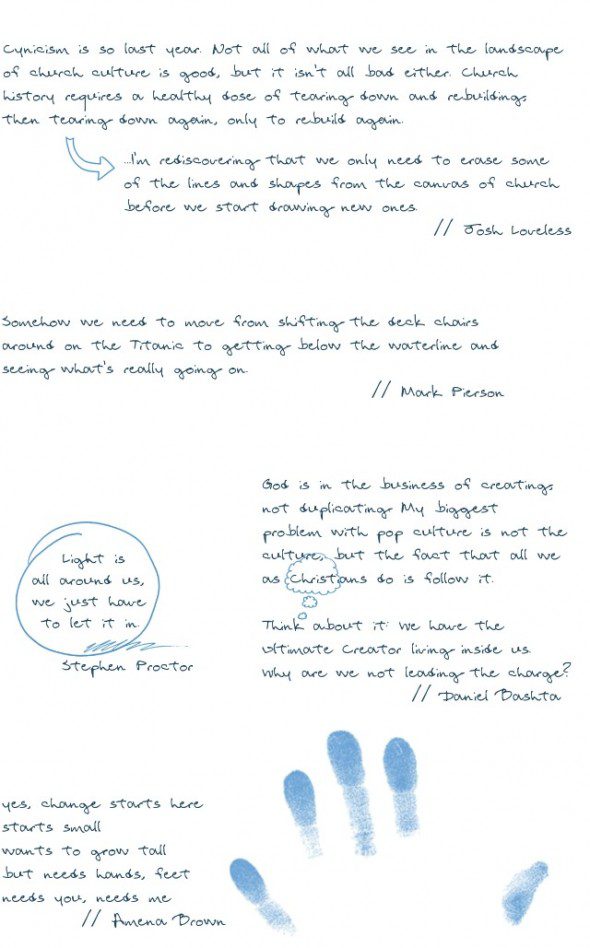 Cynicism is so last year. Not all of what we see in the landscape
of church culture is good, but it isn't all bad either. Church
history requires a healthy dose of tearing down and rebuilding,
then tearing down again, only to rebuild again.
...I'm rediscovering that we only need to erase some
of the lines and shapes from the canvas of church
before we start drawing new ones.
// Josh Loveless
Somehow we need to move from shifting the deck chairs
around on the Titanic to getting below the waterline and
seeing what's really going on.
// Mark Pierson
God is in the business of creating,
not duplicating. My biggest
problem with pop culture is not the
culture, but the fact that all we
as Christians do is follow it.
Think about it: we have the
ultimate Creator living inside us.
Why are we not leading the charge?
// Daniel Bashta
Light is
all around us,
we just have
to let it in.
Stephen Proctor
yes, change starts here
starts small
wants to grow tall
but needs hands, feet
needs you, needs me
// Amena Brown